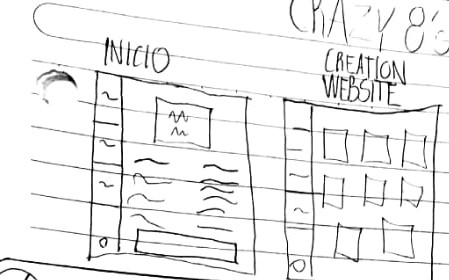 CRAZY 8's
INICIO
CREATION
WEBSITE